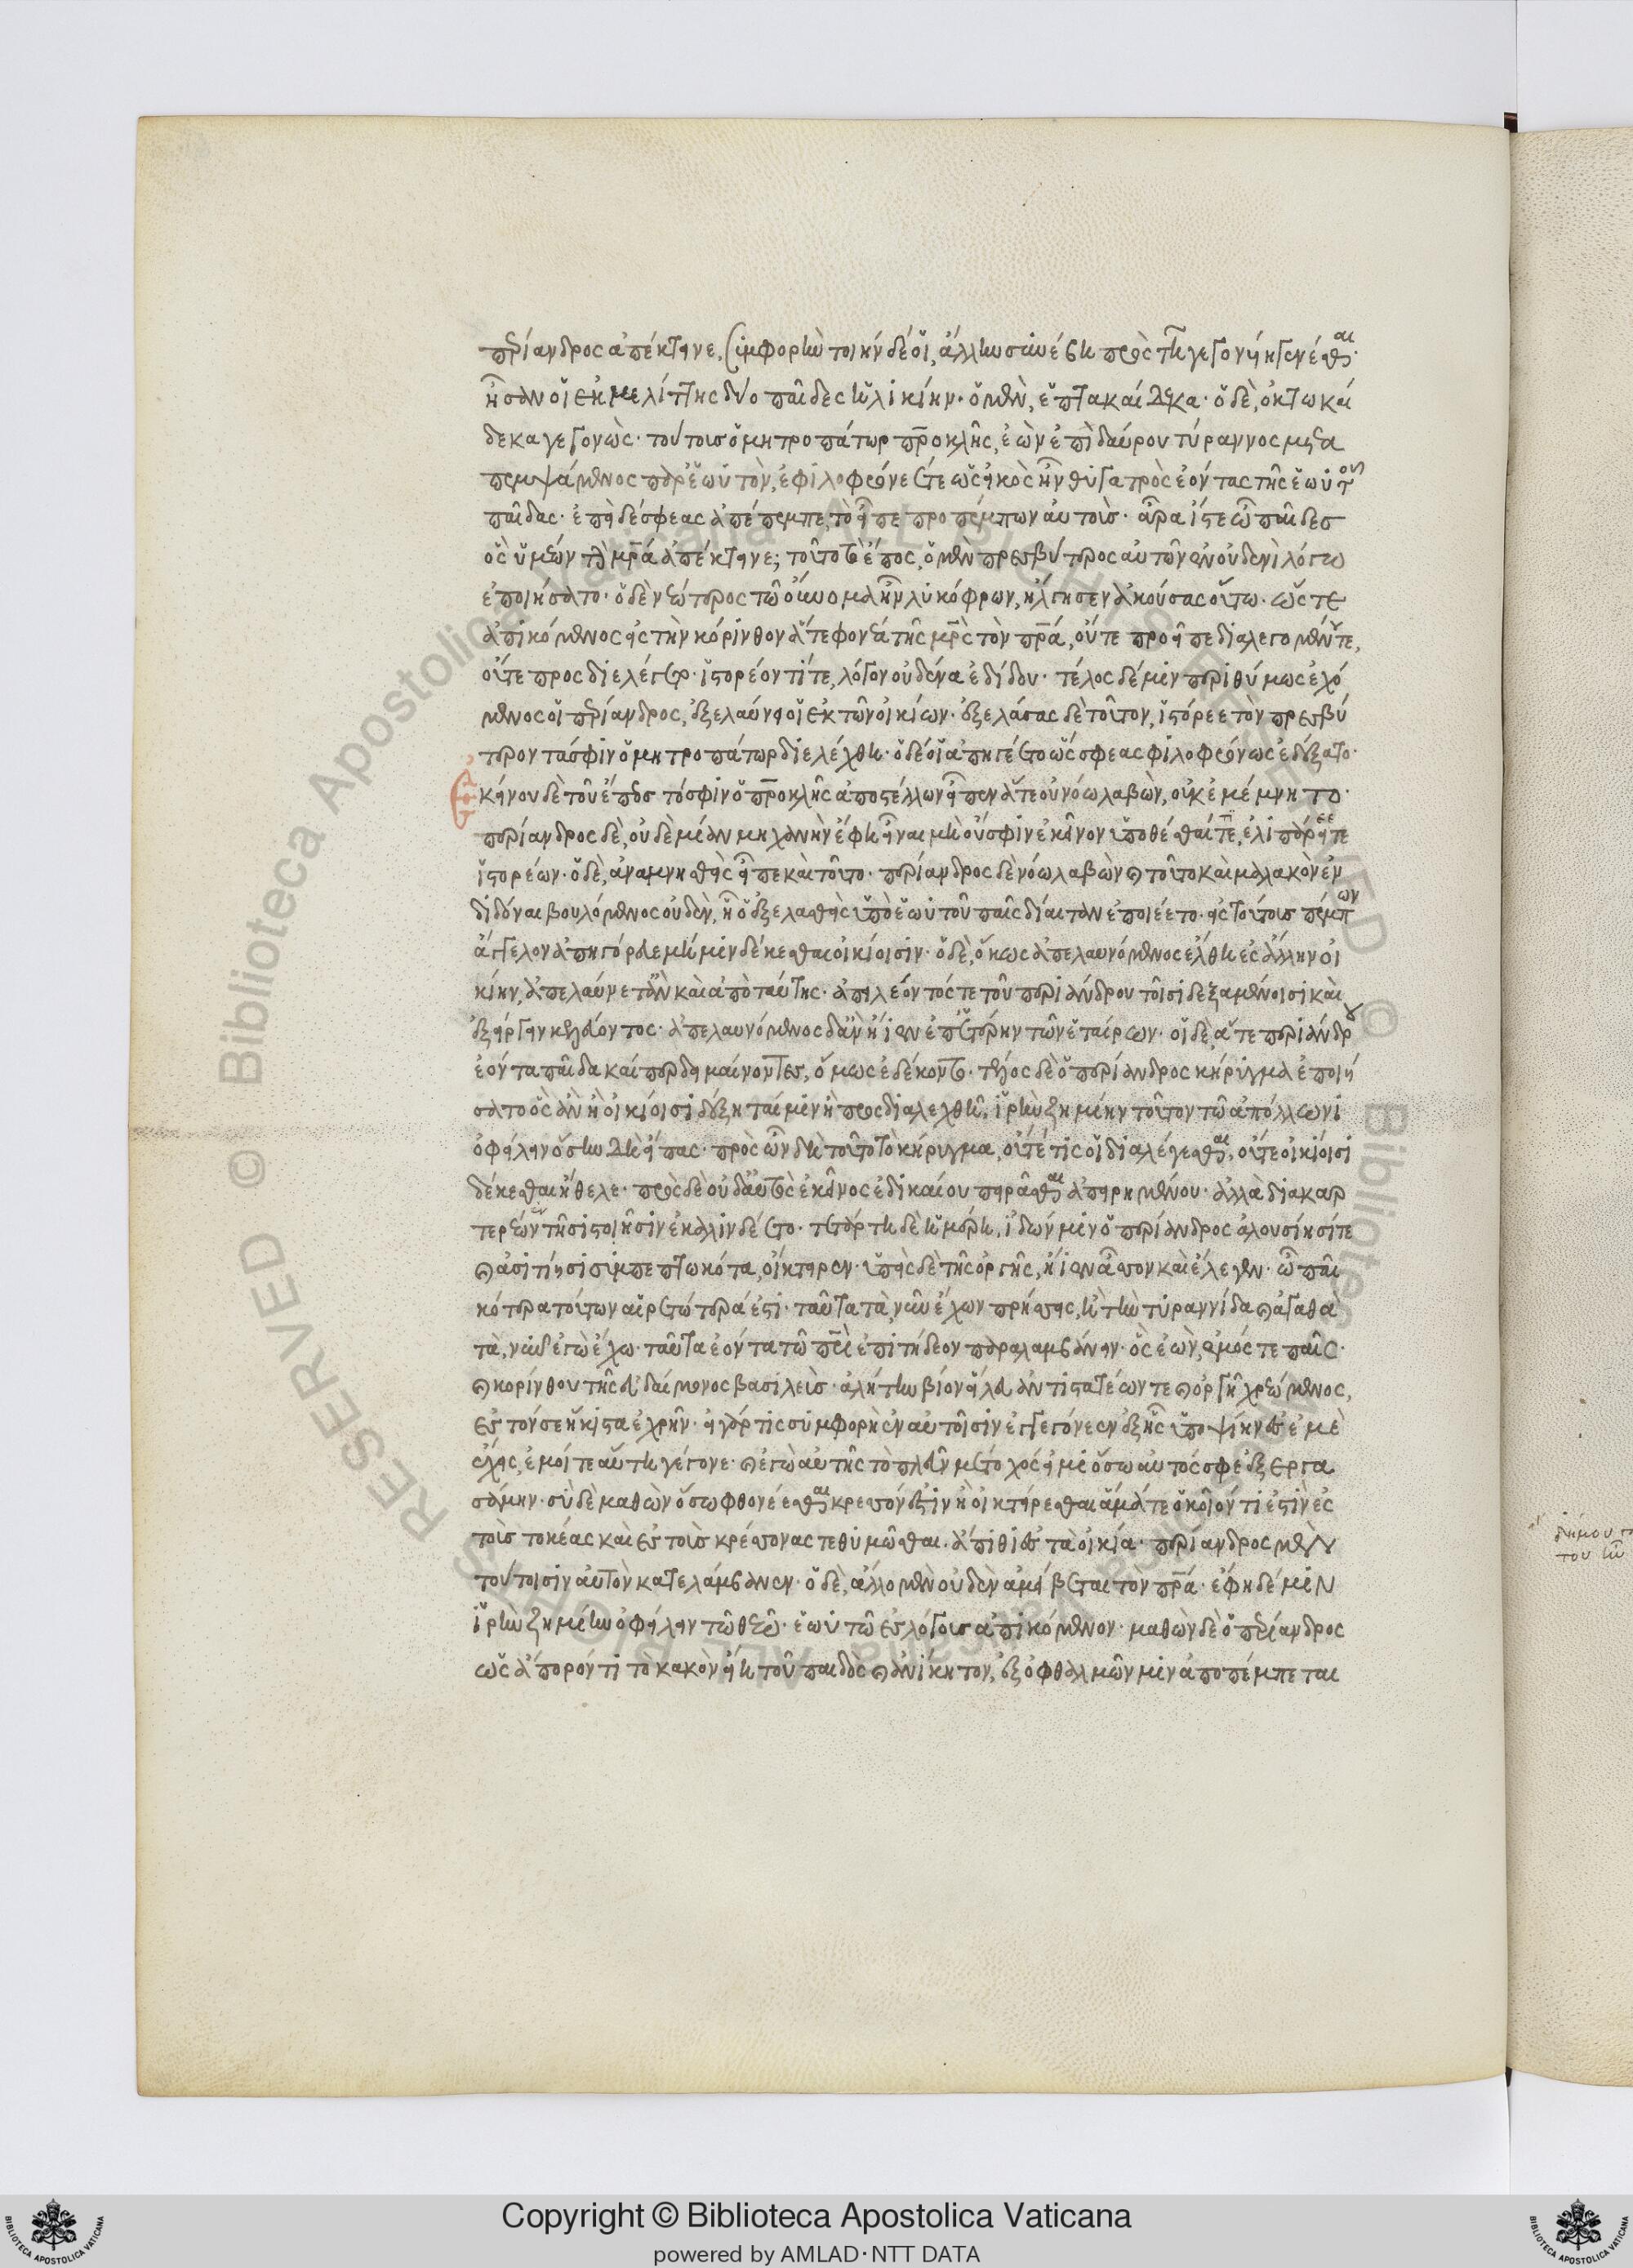 περίανδρος ἀπέκτεινε, συμφορὴν τοιήνδέ οἱ ἄλλην συνέβη πρὸς τῆ γεγονυίη γενέσθαι·
ἦσαν οἱ ἐκ μελίττης δύο παῖδες ἡλικίην· ὁ μὲν, ἑπτακαίδεκα· ὁ δὲ, ὀκτωκαί
δεκα γεγονὼς· τούτους ὁ μητροπάτωρ προκλῆς, ἐὼν ἐπιδαύρου τύραννος μετα
πεμψάμενος παρ' ἑωυτὸν, ἐφιλοφρόνεετο ὡς εἰκὸς ἦν θυγατρὸς ἐόντας τῆς ἑωυτοῦ
παῖδας· ἐπεὶ δέ σφεας ἀπέπεμπε, τὸ εἶπε προπέμπων αὐτοὺς· ἆρα ἴστε ὦ παῖδες
ὃς ὑμέων τὴν μητέρα ἀπέκτεινε; τοῦτο τὸ ἔπος, ὁ μὲν πρεσβύτερος αὐτῶν ἐν οὐδενὶ λόγω
ἐποιήσατο· ὁ δὲ νεώτερος τῶ οὔνομα ἦν λυκόφρων, ἤλγησεν ἀκούσας οὕτω· ὥστε
ἀπικόμενος εἰς τὴν κόρινθον ἅτε φονέα τῆς μητρὸς τὸν πατέρα, οὔτε προεῖπε διαλεγομένω τε,
οὔτε προσδιελέγετο· ἱστορέοντί τε, λόγον οὐδένα ἐδίδου· τέλος δέ μιν περιθύμως ἐχό
μενος ὁ περίανδρος, ἐξελαύνει ἐκ τῶν οἰκίων· ἐξελάσας δὲ τοῦτον, ἱστόρεε τὸν πρεσβύ
τερον τά σφιν ὁ μητροπάτωρ διελέχθη· ὁ δέ οἱ ἀπηγέετο ὥς σφεας φιλοφρόνως ἐδέξατο·
Ἐκείνου δὲ τοῦ ἔπεος τό σφιν ὁ προκλῆς ἀποστέλλων εἶπεν ἅτε οὐ νόω λαβὼν, οὐκ ἐμέμνητο·
περίανδρος δὲ, οὐδεμίαν μηχανὴν ἔφη εἶναι μὴ οὔ σφιν ἐκεῖνον ὑποθέσθαι τι, ἐλιπάρεέ τε
ἱστορέων· ὁ δὲ, ἀναμνησθεὶς εἶπε καὶ τοῦτο· περίανδρος δὲ νόω λαβὼν καὶ τοῦτο καὶ μαλακὸν ἐν
διδόναι βουλόμενος οὐδὲν, ἧ ὁ ἐξελασθεὶς ὑπὸ ἑωυτοῦ παῖς δίαιταν ἐποιέετο· εἰς τούτους πέμπων
ἄγγελον ἀπηγόρευε μή μιν δέκεσθαι οἰκίοισιν· ὁ δὲ, ὅκως ἀπελαυνόμενος ἔλθη ἐς ἄλλην οἰ
κίην, ἀπελαύνετ' ἂν καὶ ἀπὸ ταύτης· ἀπειλέοντός τε τοῦ περιάνδρου τοῖσι δεξαμένοισι καὶ
ἐξείργειν κελεύοντος· ἀπελαυνόμενος δ' ἂν ἤιεν ἐπ' ἑτέρην τῶν ἑταίρων· οἱ δὲ, ἅτε περιάνδρου
ἐόντα παῖδα καίπερ δειμαίνοντες, ὅμως ἐδέκοντο· τέλος δὲ ὁ περίανδρος κήρυγμα ἐποιή
σατο ὃς ἂν ἢ οἰκίοισι δέξηταί μιν ἢ προσδιαλεχθῆ, ἱρὴν ζημίην τοῦτον τῶ ἀπόλλωνι
ὀφείλειν ὅσην δὴ εἴπας· πρὸς ὦν δὴ τοῦτο τὸ κήρυγμα, οὔτέ τίς οἱ διαλέγεσθαι, οὔτε οἰκίοισι
δέκεσθαι ἤθελε· πρὸς δὲ οὐδὲ αὐτὸς ἐκεῖνος ἐδικαίου πειρᾶσθαι ἀπειρημένου· ἀλλὰ διακαρ
τερέων ἐν τῆσι στοιῆσιν ἐκαλινδέετο· τετάρτη δὲ ἡμέρη, ἰδών μιν ὁ περίανδρος ἀλουσίησί τε
καὶ ἀσιτίησι συμπεπτωκότα, οἴκτειρεν· ὑπεὶς δὲ τῆς ὀργῆς, ἤιεν ἆσσον καὶ ἔλεγεν· ὦ παῖ
κότερα τούτων αἱρετώτερά ἐστι· ταῦτα τὰ νῦν ἔχων πρήσσεις, ἢ τὴν τυραννίδα καὶ ἀγαθὰ
τὰ, νῦν ἐγὼ ἔχω· ταῦτα ἐόντα τῶ πατρὶ ἐπιτήδεον παραλαμβάνειν· ὃς ἐὼν, ἐμός τε παῖς·
καὶ κορίνθου τῆς εὐδαίμονος βασιλεὺς· ἀλήτην βίον εἵλευ ἀντιστατέων τε καὶ ὀργῆ χρεώμενος,
ἐς τόν σε ἥκιστα ἐχρῆν· εἰ γάρ τις συμφορὴ ἐν αὐτοῖσιν ἐγεγόνεεν ἐξ ἧς ὑποψίην ἐς ἐμὲ
ἔχεις, ἐμοί τε αὕτη γέγονε· καὶ ἐγὼ αὐτῆς τὸ πλεῦν μέτοχός εἰμι ὅσω αὐτός σφε ἐξεργα
σάμην· σὺ δὲ μαθὼν ὅσω φθονέεσθαι κρέσσον ἐστὶν ἢ οἰκτείρεσθαι ἅμα τε ὁκοῖόν τι ἐστὶν ἐς
τοὺς τοκέας καὶ ἐς τοὺς κρέσσονας τεθυμῶσθαι. ἄπιθι ἐς τὰ οἰκία· περίανδρος μὲν
τούτοισιν αὐτὸν κατελάμβανεν· ὁ δὲ, ἄλλο μὲν οὐδὲν ἀμείβεται τὸν πατέρα· ἔφη δέ μιν
ἱρὴν ζημίην ὀφείλειν τῶ θεῶ· ἑωυτῶ ἐς λόγους ἀπικόμενον· μαθὼν δὲ ὁ περίανδρος
ὡς ἄπορόν τι τὸ κακὸν εἴη τοῦ παιδὸς καὶ ἀνίκητον, ἐξ ὀφθαλμῶν μιν ἀποπέμπεται
Copyright © Biblioteca Apostolica Vaticana
powered by AMLAD·NTT DATA